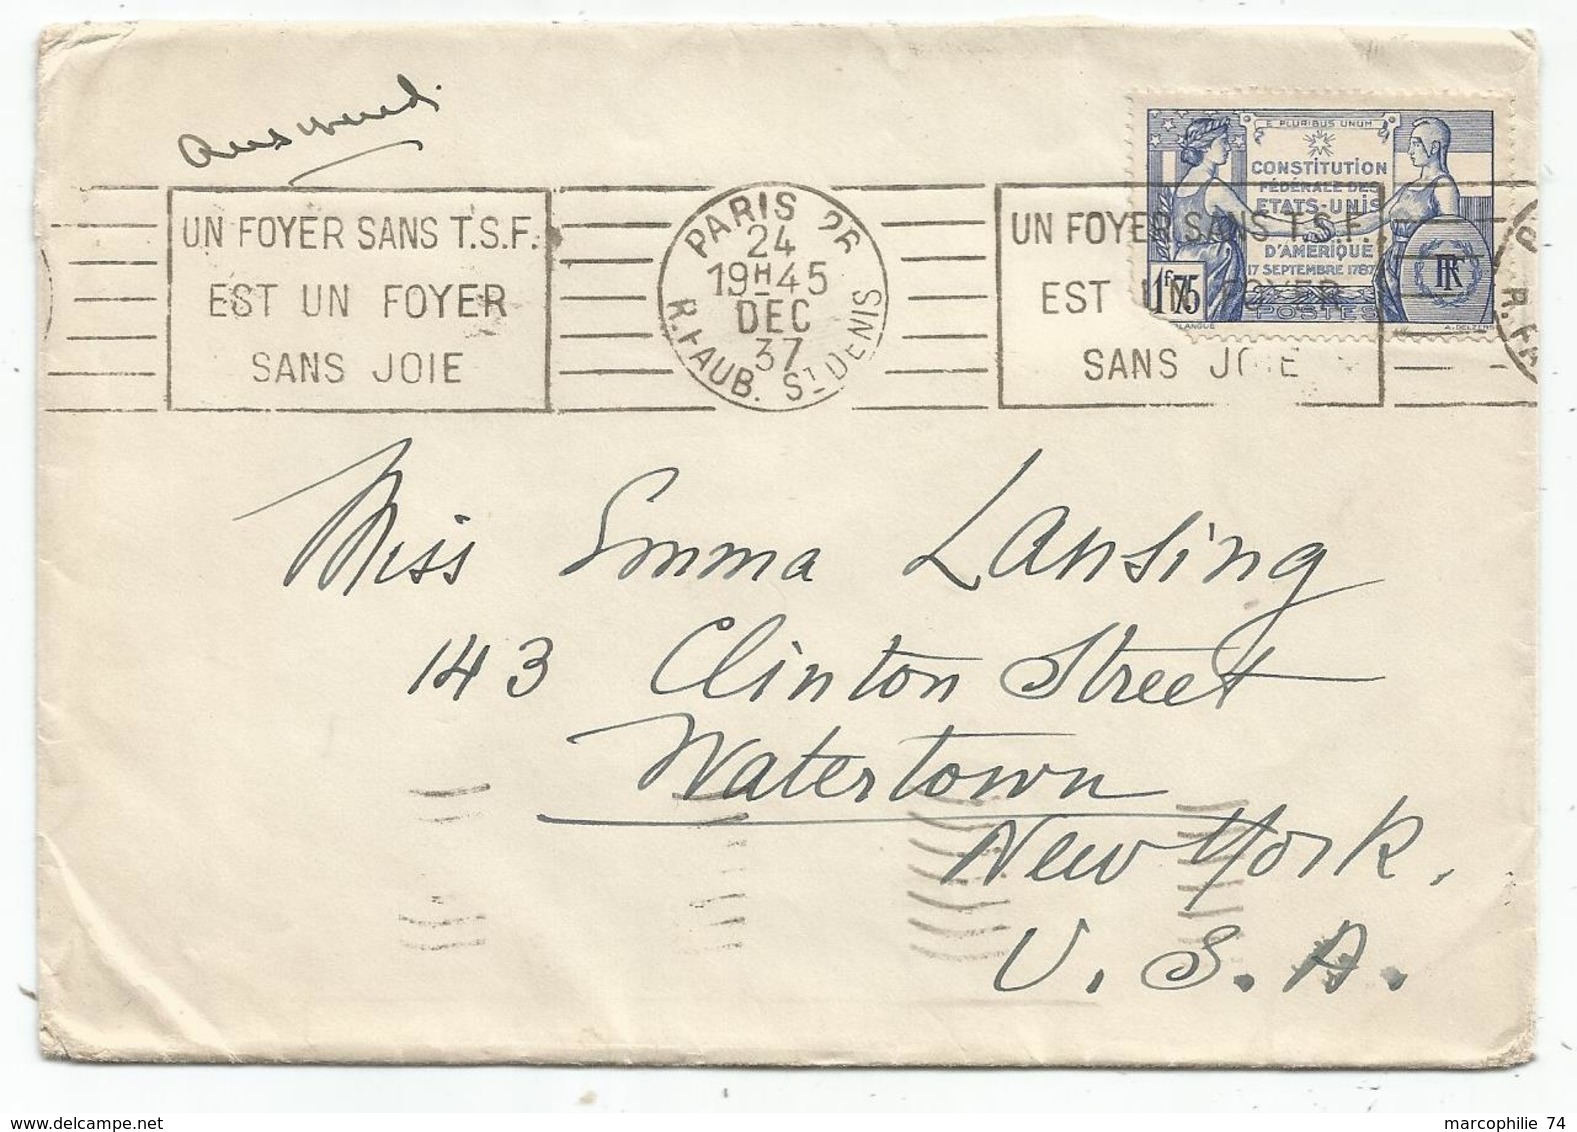 answered.
UN FOYER SANS T.S.F.
EST UN FOYER
SANS JOIE
PARIS 26
24
19H45
DEC
37
R.FAUB. ST DENIS
UN FOYER SANS T.S.F.
EST UN FOYER
SANS JOIE
E PLURIBUS UNUM
CONSTITUTION
FÉDÉRALE DES
ETATS-UNIS
D'AMÉRIQUE
17 SEPTEMBRE 1787
1F75
RF
POSTES
Miss Emma Lansing
143 Clinton Street
Watertown
New York.
U.S.A.
marcophilie 74